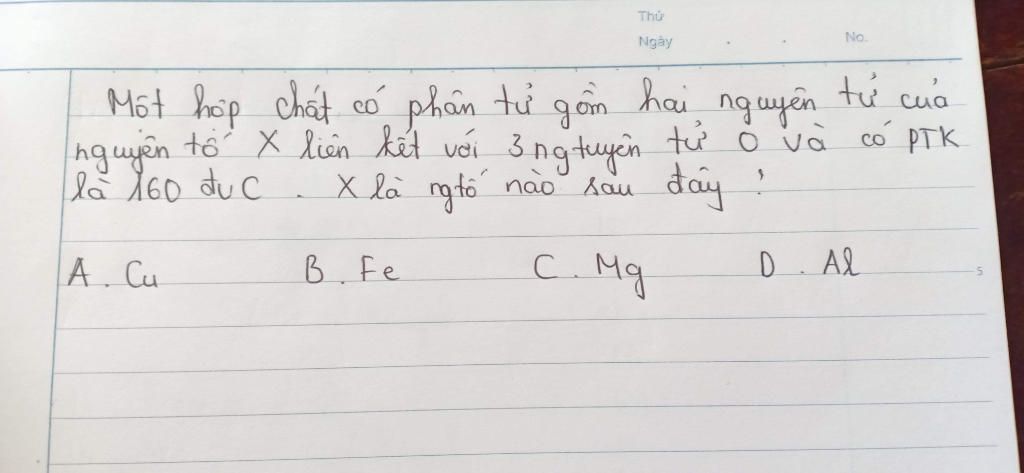 Thứ
Ngày . . No.
Một hợp chất có phân tử gồm hai nguyên tử của
nguyên tố X liên kết với 3 ngtuyên tử O và có PTK
là 160 đvC . X là ngtố nào sau đây ?
A . Cu B . Fe C . Mg D . Al
5